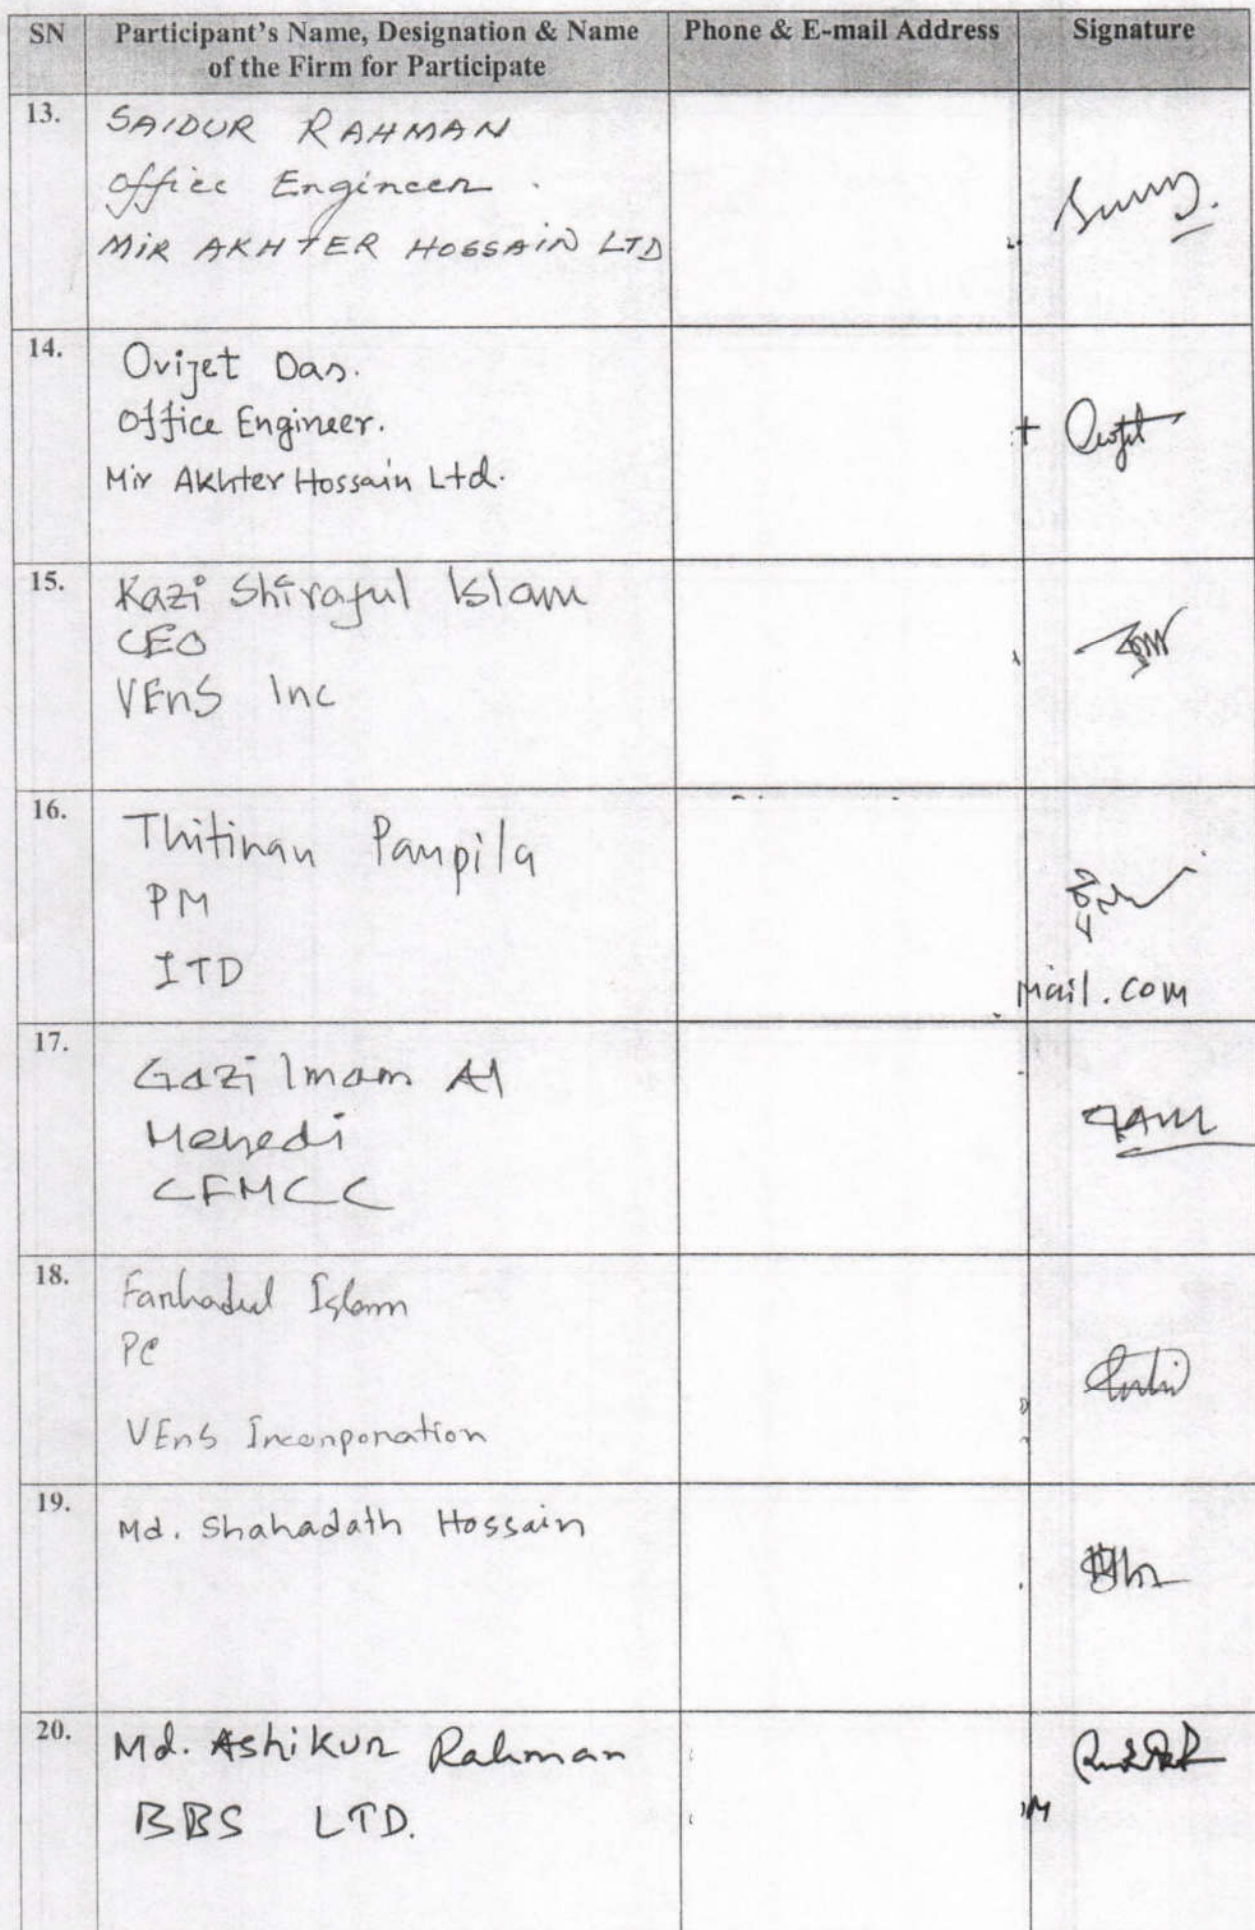 SN Participant's Name, Designation & Name of the Firm for Participate Phone & E-mail Address Signature
13.
SAIDUR RAHMAN
Office Engineer.
MIR AKHTER HOSSAIN LTD
14.
Ovijet Das.
Office Engineer.
Mir Akhter Hossain Ltd.
15.
Kazi Shirajul Islam
CEO
VEnS Inc
16.
Thitinan Panpila
PM
ITD
mail.com
17.
Gazi Imam Al
Mehedi
CFMCC
18.
Farhadul Islam
PC
VEnS Incorporation
19.
Md. Shahadath Hossain
20.
Md. Ashikur Rahman
BBS LTD.